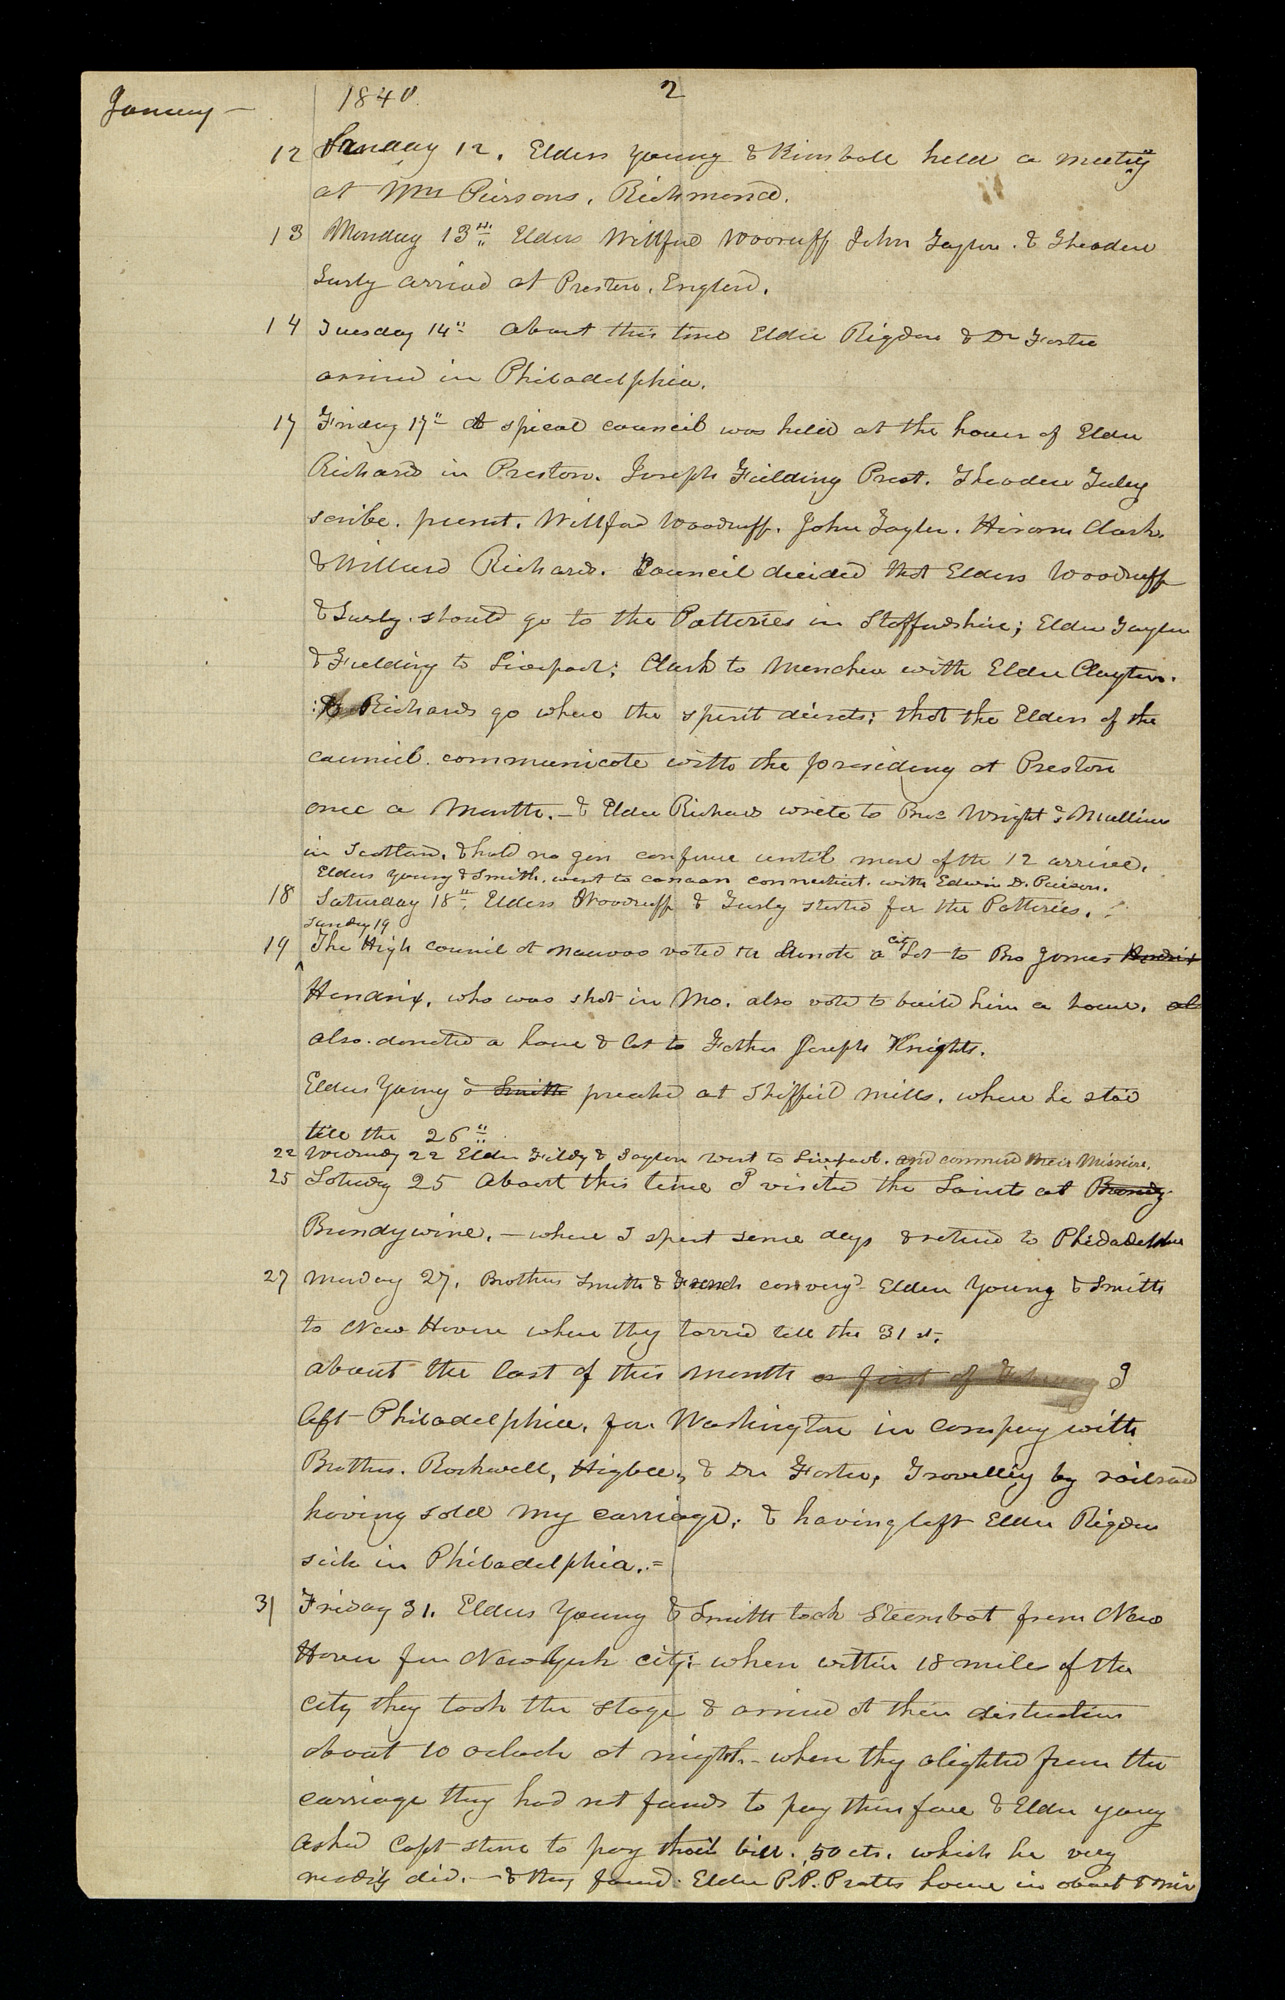 January — 1840 2
12 Sunday 12. Elders Young & Kimball held a meeting
at Wm Piersons, Richmond.
13 Monday 13th Elders Willford Woodruff John Taylor. & Theodore
Turly arrived at Preston, England.
14 Tuesday 14" about this time Elder Rigdon & Dr Foster
arrived in Philadelphia.
17 Friday 17" A spical council was held at the house of Elder
Richards in Preston. Joseph Fielding Prest. Theodore Turley
scribe. present. Willford Woodruff. John Taylor. Hiram Clark
& Willard Richards. Council decided that Elders Woodruff
& Turly should go to the Potteries in Staffordshire; Elder Taylor
& Fielding to Liverpool; Clark to Manchester with Elder Clayton.
: Richards go where the spirit directs; that the Elders of the
council. communicate with the presiding at Preston
once a Month. — & Elder Richards write to Bros Wright & Mulliner
in Scotland, & hold no gen conference until more of the 12 arrive.
Elders Young & Smith. went to canaan connecticut. with Edwin D. Pierson.
18 Saturday 18th. Elders Woodruff & Turly started for the Potteries.
Sunday 19
19 The High council at Nauvoo voted to donate a city Lot to Bro James Hendrix
Hendrix, who was shot in Mo. also vote to build him a house. al
also donated a house & lot to Father Joseph Knights.
Elders Young & Smith preached at Sheffield mills. where he staid
till the 26"
22 Wednesdy 22 Elder Fieldg & Taylor went to Liverpool. and commenced their Mission.
25 Saturday 25 About this time I visited the Saints at Brandy
Brandywine. — where I spent some days & returned to Philadelphia
27 Monday 27. Brothers Smith & French convey'd Elders Young & Smith
to New Haven where they tarried till the 31st.
about the last of this Month or first of February I
left Philadelphia, for Washington in compay with
Brothers. Rockwell, Higbee, & Dr Foster, Travelling by railroad
having sold my carriage; & having left Elder Rigdon
sick in Philadelphia. =
31 Friday 31. Elders Young & Smith took Steamboat from New
Haven for New York city; when within 18 miles of the
city they took the stage & arrived at their distination
about 10 oclock at night. — when thy alighted from the
carriage they had not funds to pay their fare & Elder Young
asked Capt Stone to pay their bill. 50 cts. which he very
readily did. — & they found Elder P. P. Pratts home in about 5 min